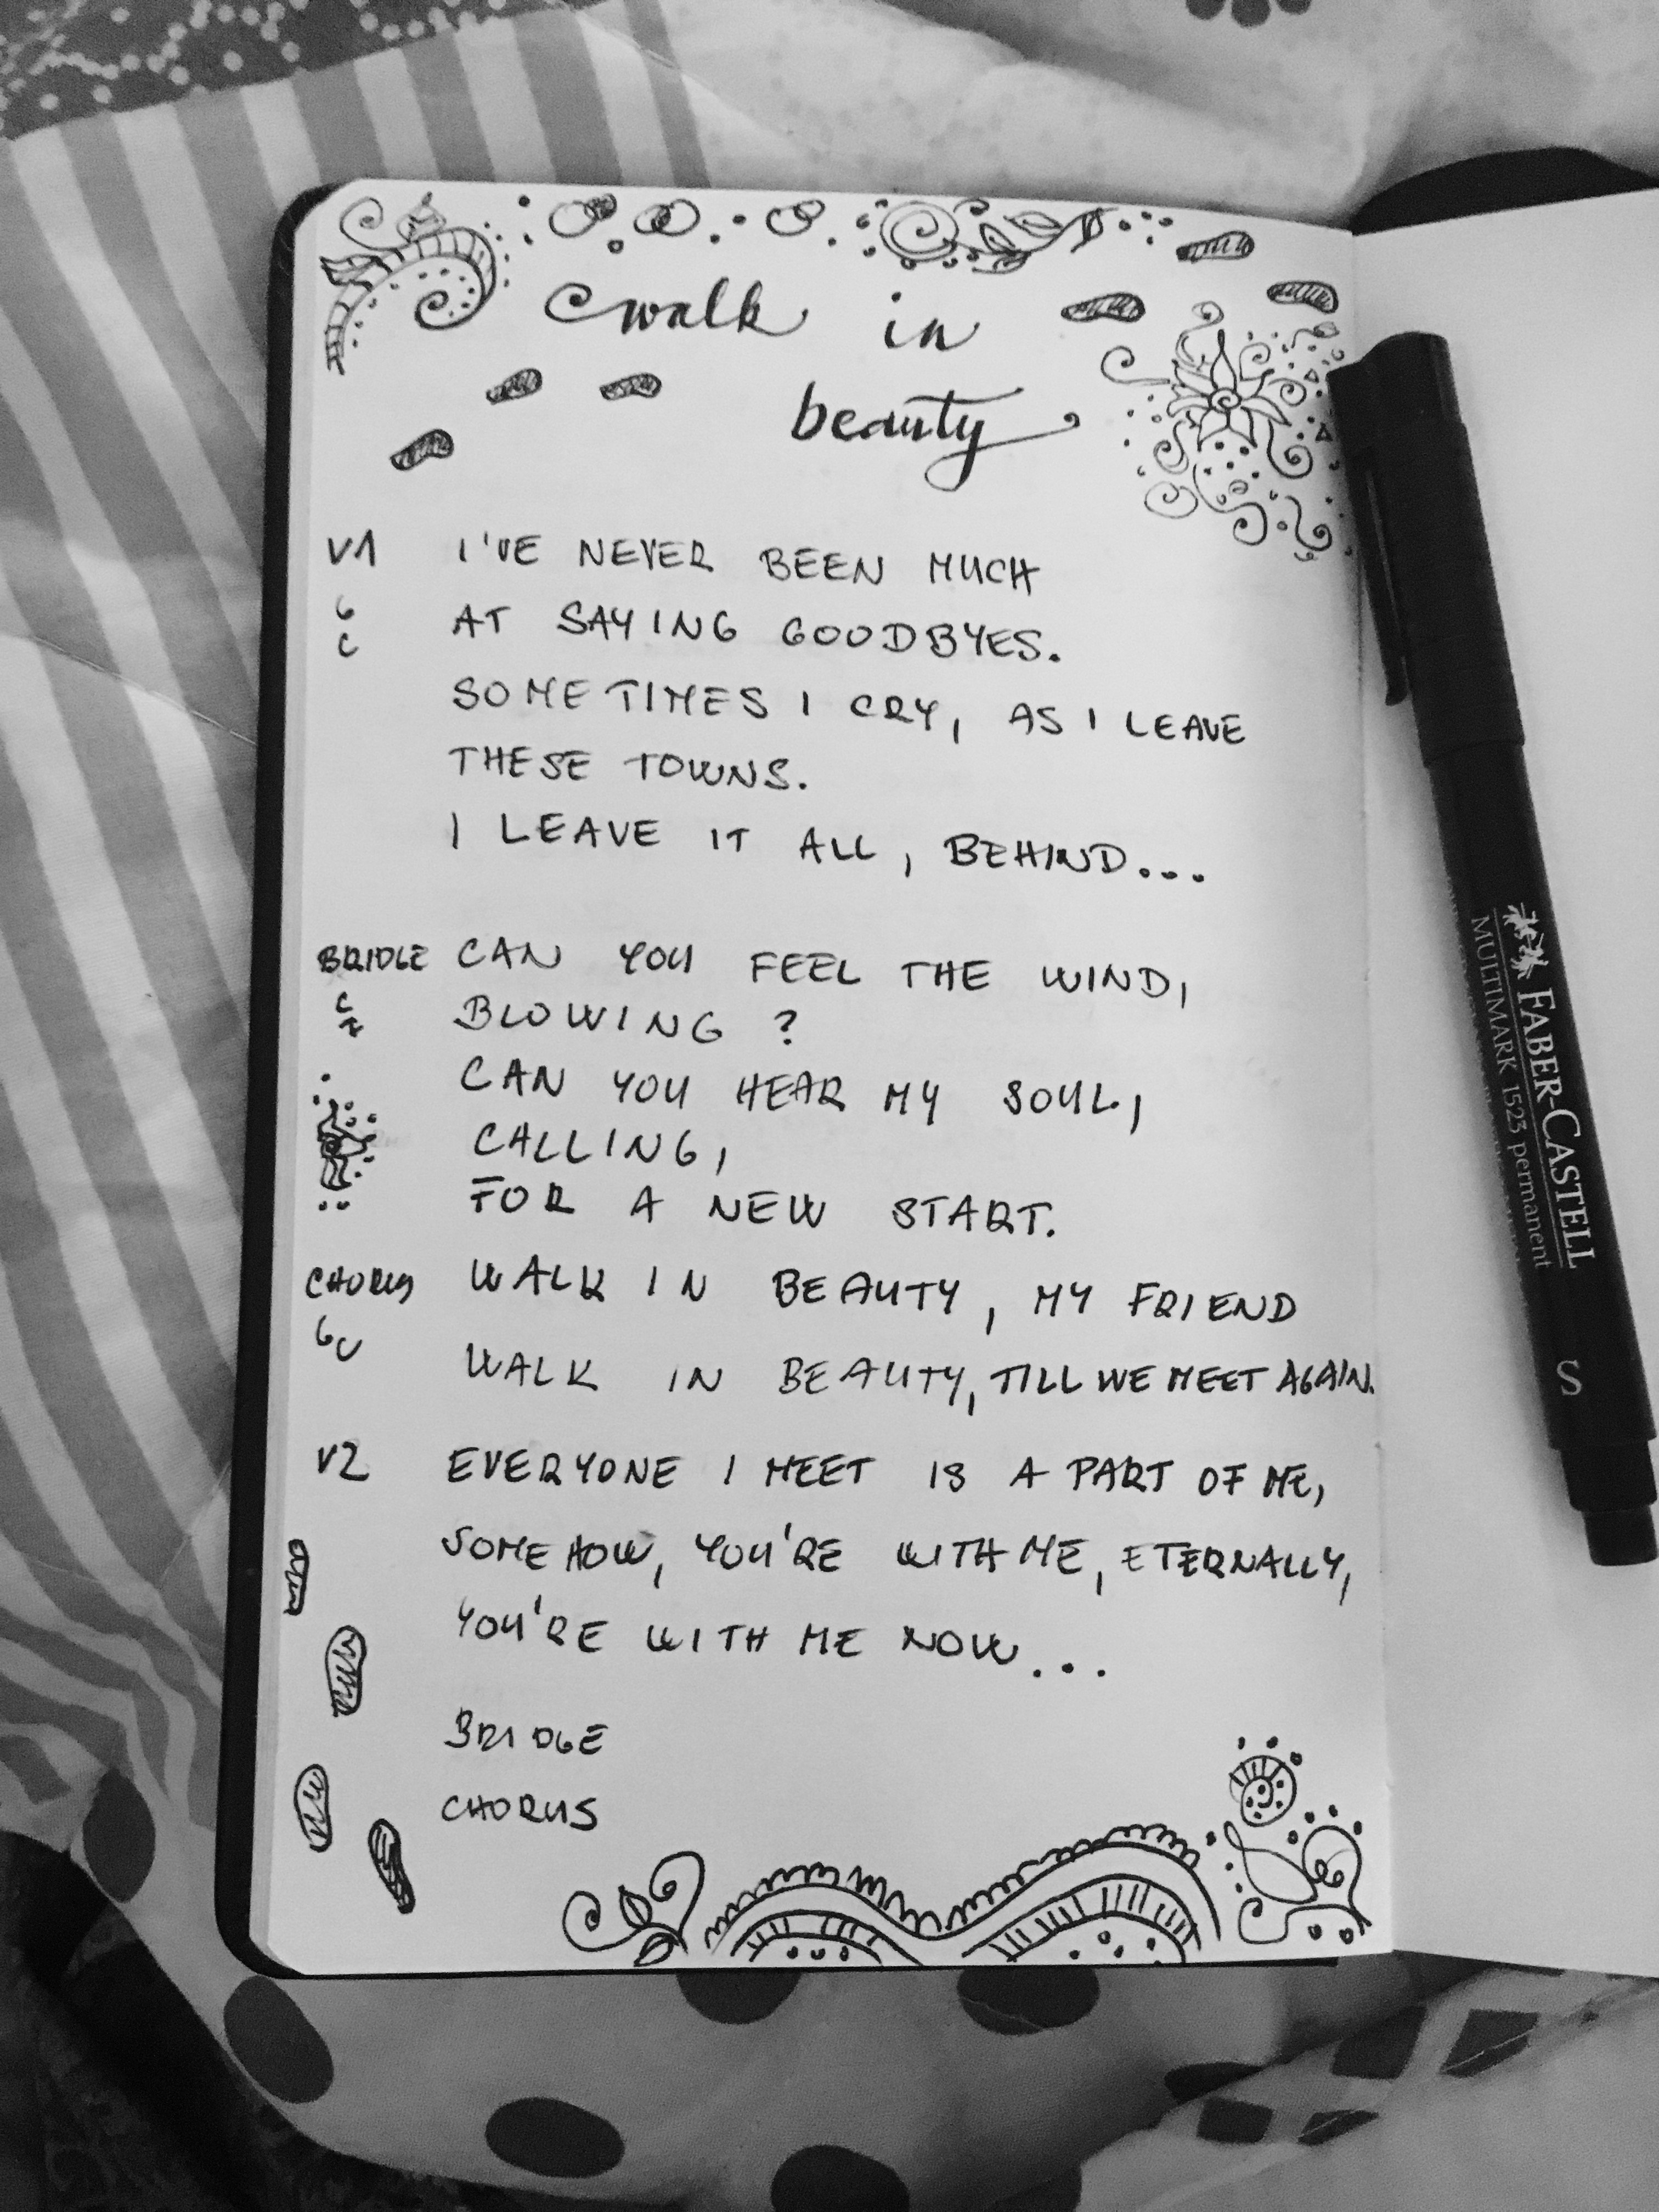 walk in
beauty
V1 I'VE NEVER BEEN MUCH
G AT SAYING GOODBYES.
C
SOMETIMES I CRY, AS I LEAVE
THESE TOWNS.
I LEAVE IT ALL, BEHIND...
BRIDGE CAN YOU FEEL THE WIND,
C BLOWING ?
CAN YOU HEAR MY SOUL,
CALLING,
FOR A NEW START.
CHORUS WALK IN BEAUTY, MY FRIEND
G C
WALK IN BEAUTY, TILL WE MEET AGAIN.
V2 EVERYONE I MEET IS A PART OF ME,
SOMEHOW, YOU'RE WITH ME, ETERNALLY,
YOU'RE WITH ME NOW...
BRIDGE
CHORUS
FABER-CASTELL
MULTIMARK 1523 permanent
S